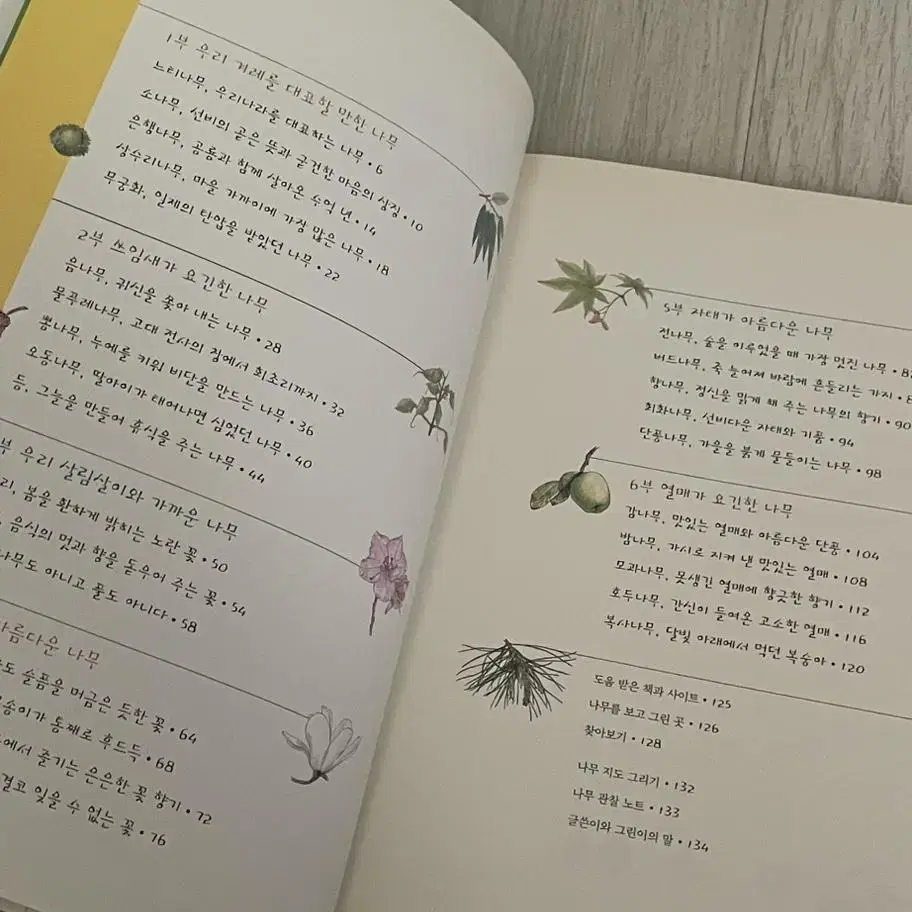 1부 우리 겨레를 대표할 만한 나무
느티나무, 우리나라를 대표하는 나무 • 6
소나무, 선비의 곧은 뜻과 굳건한 마음의 상징 • 10
은행나무, 공룡과 함께 살아온 수억 년 • 14
상수리나무, 마을 가까이에 가장 많은 나무 • 18
무궁화, 일제의 탄압을 받았던 나무 • 22
2부 쓰임새가 요긴한 나무
음나무, 귀신을 쫓아 내는 나무 • 28
물푸레나무, 고대 전사의 창에서 회초리까지 • 32
뽕나무, 누에를 키워 비단을 만드는 나무 • 36
오동나무, 딸아이가 태어나면 심었던 나무 • 40
등, 그늘을 만들어 휴식을 주는 나무 • 44
부 우리 살림살이와 가까운 나무
리, 봄을 환하게 밝히는 노란 꽃 • 50
음식의 멋과 향을 돋우어 주는 꽃 • 54
나무도 아니고 풀도 아니다 • 58
아름다운 나무
도 슬픔을 머금은 듯한 꽃 • 64
송이가 통째로 후드득 • 68
에서 즐기는 은은한 꽃 향기 • 72
결코 잊을 수 없는 꽃 • 76
5부 자태가 아름다운 나무
전나무, 숲을 이루었을 때 가장 멋진 나무 •
버드나무, 축 늘어져 바람에 흔들리는 가지 •
향나무, 정신을 맑게 해 주는 나무의 향기 • 90
회화나무, 선비다운 자태와 기품 • 94
단풍나무, 가을을 붉게 물들이는 나무 • 98
6부 열매가 요긴한 나무
감나무, 맛있는 열매와 아름다운 단풍 • 104
밤나무, 가시로 지켜 낸 맛있는 열매 • 108
모과나무, 못생긴 열매에 향긋한 향기 • 112
호두나무, 간신이 들여온 고소한 열매 • 116
복사나무, 달빛 아래에서 먹던 복숭아 • 120
도움 받은 책과 사이트 • 125
나무를 보고 그린 곳 • 126
찾아보기 • 128
나무 지도 그리기 • 132
나무 관찰 노트 • 133
글쓴이와 그린이의 말 • 134